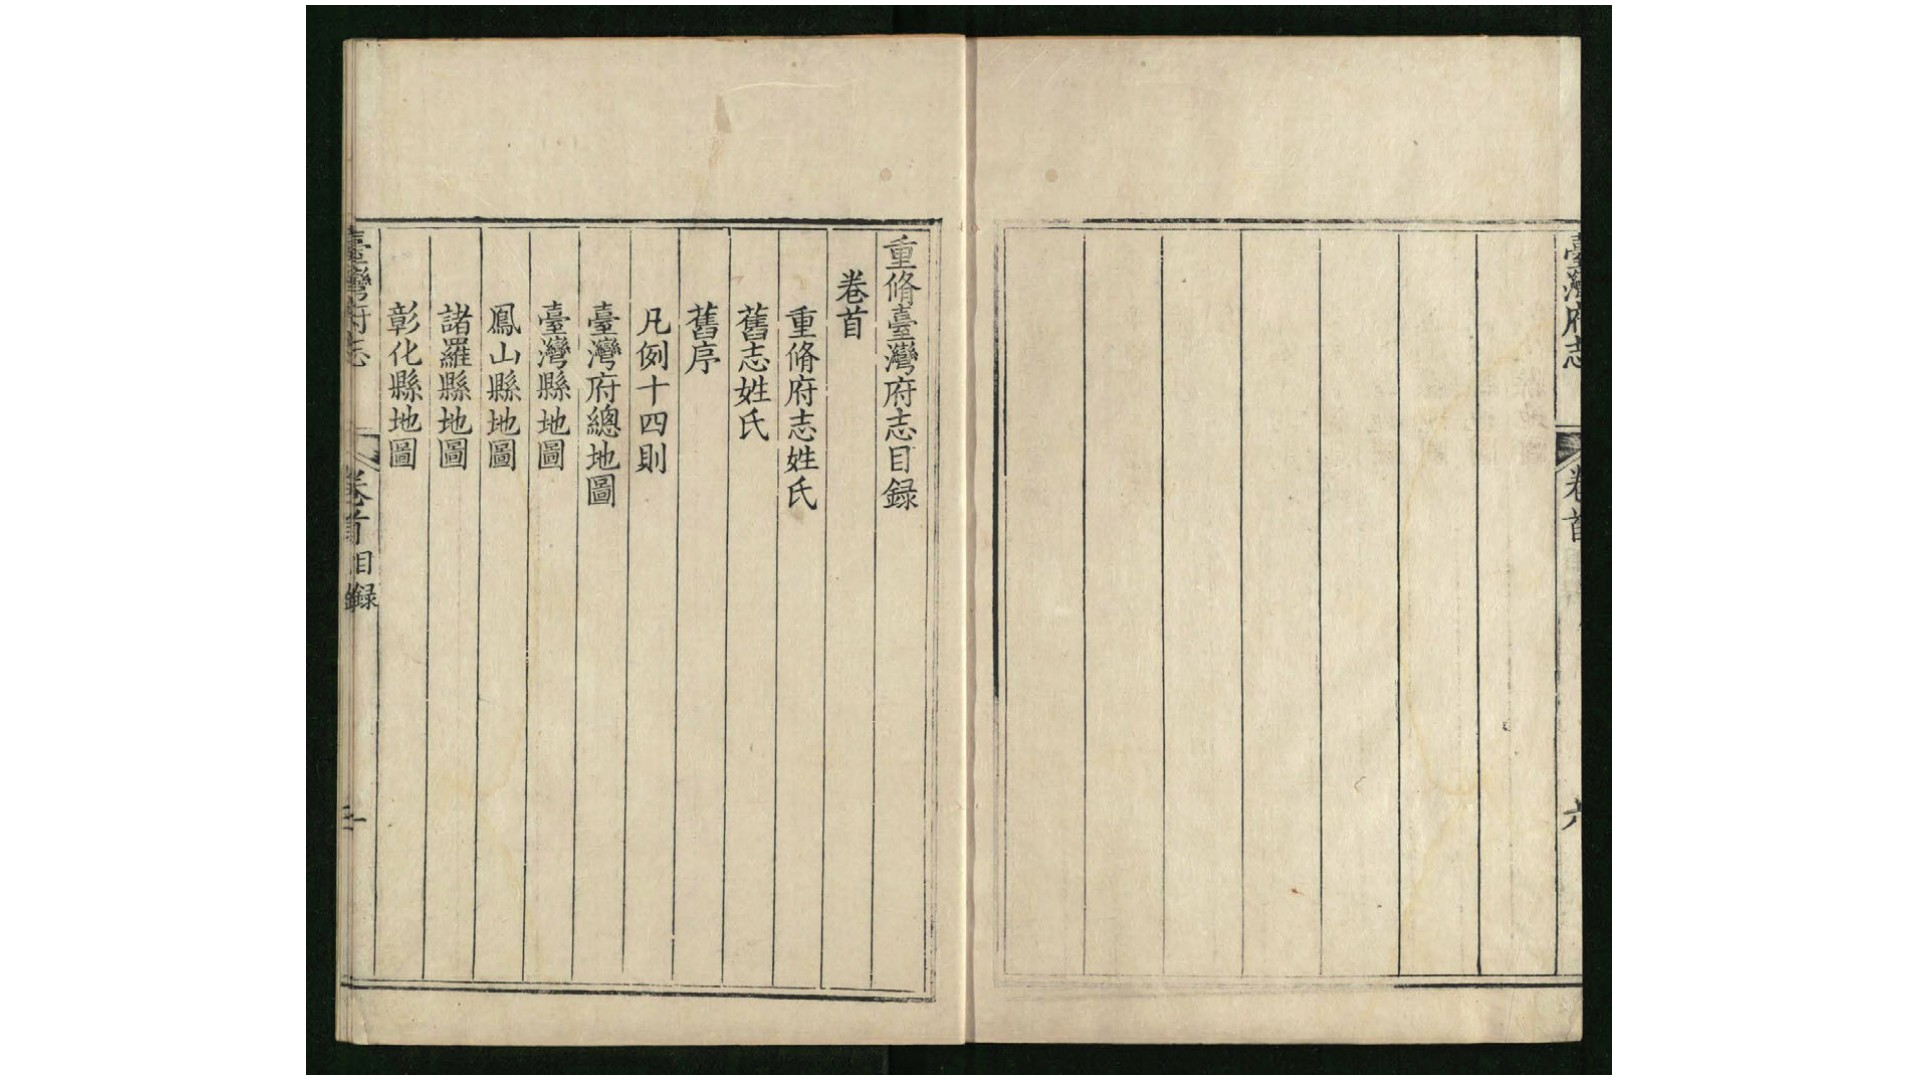 臺灣府志
卷首
六
重脩臺灣府志目録
卷首
重脩府志姓氏
舊志姓氏
舊序
凡例十四則
臺灣府總地圖
臺灣縣地圖
鳳山縣地圖
諸羅縣地圖
彰化縣地圖
臺灣府志
卷首
目録
一